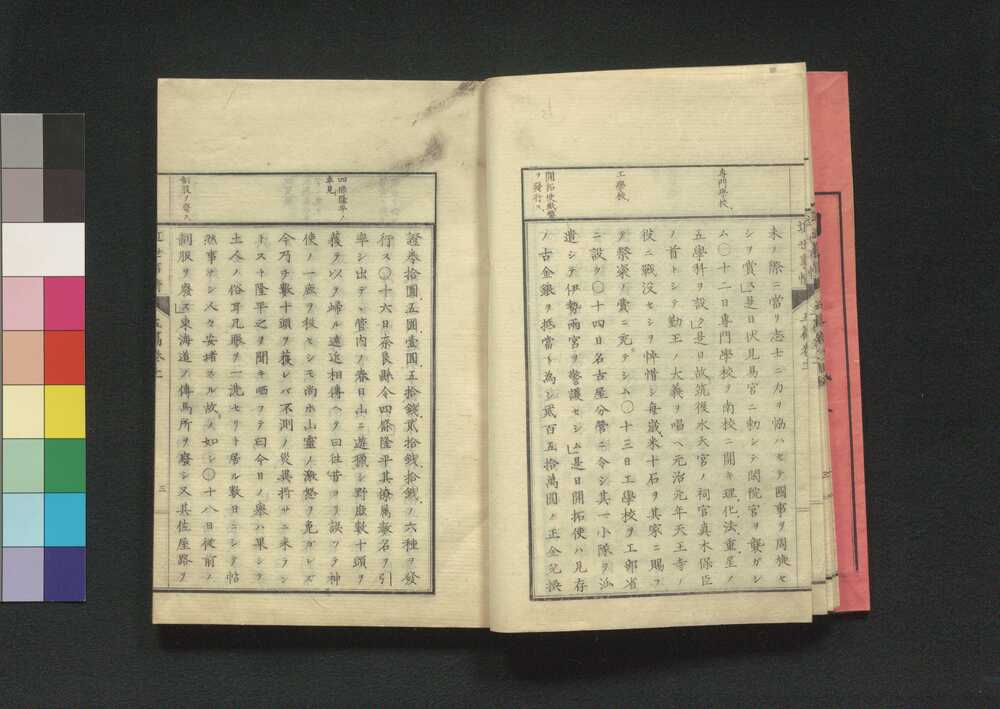 専門學校
工學校
開拓使紙幣
ヲ發行ス
未ノ際ニ當リ志士ニ力ヲ恊ハセテ國事ヲ周旋セ
シヲ賞ス是日伏見宮ニ勅シテ閑院宮ヲ襲ガシ
ム〇十二日専門學校ヲ南校ニ開キ理化法重星ノ
五學科ヲ設ク是日故筑後水天宮ノ祠官真木保臣
ノ首トシテ勤王ノ大義ヲ唱ヘ元治元年天王寺ノ
役ニ戰没セシヲ悼惜シ毎歳米十石ヲ其家ニ賜フ
ヲ祭粢ノ賞ニ充テシム〇十三日工學校ヲ工部省
ニ設ク〇十四日名古屋分營ニ令シ其一小隊ヲ
遣シテ伊勢兩宮ヲ警護セシム是日開拓使ハ見存
ノ古金銀ヲ抵當ト為シ貳百五拾萬圓ノ正金兌換
四條隆平ノ
卓見
制服ノ廢ス
證券拾圓五圓壹圓五拾銭貳拾銭拾銭ノ六種ヲ發
行ス〇十六日奈良縣令四條隆平其僚属數名ヲ引
率シ出デヽ管内ノ春日山ニ遊獵シ野鹿數十頭ヲ
獲ヲ以テ歸ル遠近相傳ヘテ曰往昔ヨリ誤ツテ神
使ノ一鹿ヲ殺セシモ尚ホ山靈ノ激怒ヲ免ガレズ
今乃チ數十頭ヲ獲レバ不測ノ災異将サニ来ラン
トスト隆平之ヲ聞キ哂フテ曰今日ノ舉ハ果シテ
土人ノ俗耳凡眼ヲ一洗セリト居ル數日ニシテ帖
然事ナシ人々安堵スル故ノ如シ〇十八日従前ノ
制服ヲ廢ス東海道ノ傳馬所ヲ廢シ又其佐屋路ヲ
三